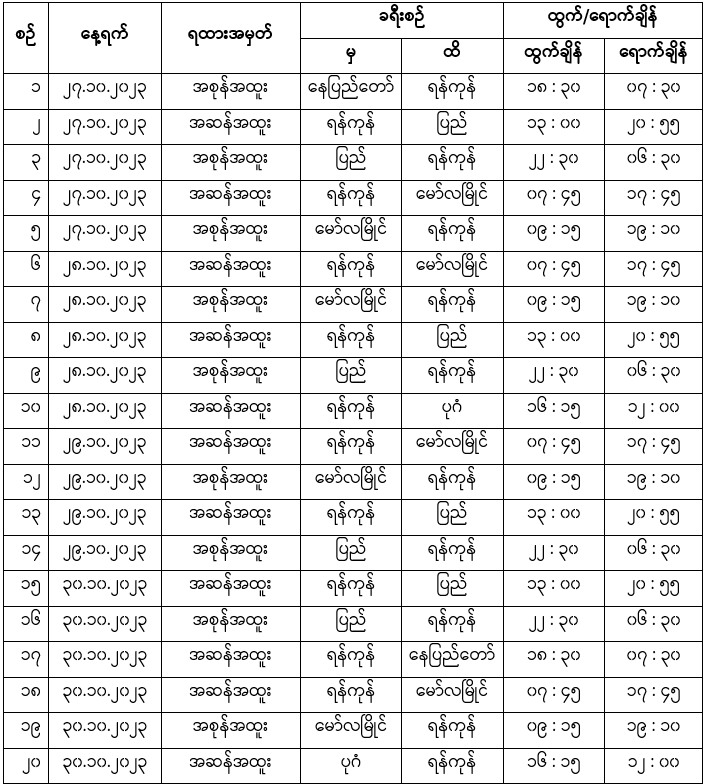 စဉ် နေ့ရက် ရထားအမှတ် ခရီးစဉ် ထွက်/ရောက်ချိန်
မှ ထိ ထွက်ချိန် ရောက်ချိန်
၁ ၂၇.၁၀.၂၀၂၃ အစုန်အထူး နေပြည်တော် ရန်ကုန် ၁၈ : ၃၀ ၀၇ : ၃၀
၂ ၂၇.၁၀.၂၀၂၃ အဆန်အထူး ရန်ကုန် ပြည် ၁၃ : ၀၀ ၂၀ : ၅၅
၃ ၂၇.၁၀.၂၀၂၃ အစုန်အထူး ပြည် ရန်ကုန် ၂၂ : ၃၀ ၀၆ : ၃၀
၄ ၂၇.၁၀.၂၀၂၃ အဆန်အထူး ရန်ကုန် မော်လမြိုင် ၀၇ : ၄၅ ၁၇ : ၄၅
၅ ၂၇.၁၀.၂၀၂၃ အစုန်အထူး မော်လမြိုင် ရန်ကုန် ၀၉ : ၁၅ ၁၉ : ၁၀
၆ ၂၈.၁၀.၂၀၂၃ အဆန်အထူး ရန်ကုန် မော်လမြိုင် ၀၇ : ၄၅ ၁၇ : ၄၅
၇ ၂၈.၁၀.၂၀၂၃ အစုန်အထူး မော်လမြိုင် ရန်ကုန် ၀၉ : ၁၅ ၁၉ : ၁၀
၈ ၂၈.၁၀.၂၀၂၃ အဆန်အထူး ရန်ကုန် ပြည် ၁၃ : ၀၀ ၂၀ : ၅၅
၉ ၂၈.၁၀.၂၀၂၃ အစုန်အထူး ပြည် ရန်ကုန် ၂၂ : ၃၀ ၀၆ : ၃၀
၁၀ ၂၈.၁၀.၂၀၂၃ အဆန်အထူး ရန်ကုန် ပုဂံ ၁၆ : ၁၅ ၁၂ : ၀၀
၁၁ ၂၉.၁၀.၂၀၂၃ အဆန်အထူး ရန်ကုန် မော်လမြိုင် ၀၇ : ၄၅ ၁၇ : ၄၅
၁၂ ၂၉.၁၀.၂၀၂၃ အစုန်အထူး မော်လမြိုင် ရန်ကုန် ၀၉ : ၁၅ ၁၉ : ၁၀
၁၃ ၂၉.၁၀.၂၀၂၃ အဆန်အထူး ရန်ကုန် ပြည် ၁၃ : ၀၀ ၂၀ : ၅၅
၁၄ ၂၉.၁၀.၂၀၂၃ အစုန်အထူး ပြည် ရန်ကုန် ၂၂ : ၃၀ ၀၆ : ၃၀
၁၅ ၃၀.၁၀.၂၀၂၃ အဆန်အထူး ရန်ကုန် ပြည် ၁၃ : ၀၀ ၂၀ : ၅၅
၁၆ ၃၀.၁၀.၂၀၂၃ အစုန်အထူး ပြည် ရန်ကုန် ၂၂ : ၃၀ ၀၆ : ၃၀
၁၇ ၃၀.၁၀.၂၀၂၃ အဆန်အထူး ရန်ကုန် နေပြည်တော် ၁၈ : ၃၀ ၀၇ : ၃၀
၁၈ ၃၀.၁၀.၂၀၂၃ အဆန်အထူး ရန်ကုန် မော်လမြိုင် ၀၇ : ၄၅ ၁၇ : ၄၅
၁၉ ၃၀.၁၀.၂၀၂၃ အစုန်အထူး မော်လမြိုင် ရန်ကုန် ၀၉ : ၁၅ ၁၉ : ၁၀
၂၀ ၃၀.၁၀.၂၀၂၃ အဆန်အထူး ပုဂံ ရန်ကုန် ၁၆ : ၁၅ ၁၂ : ၀၀